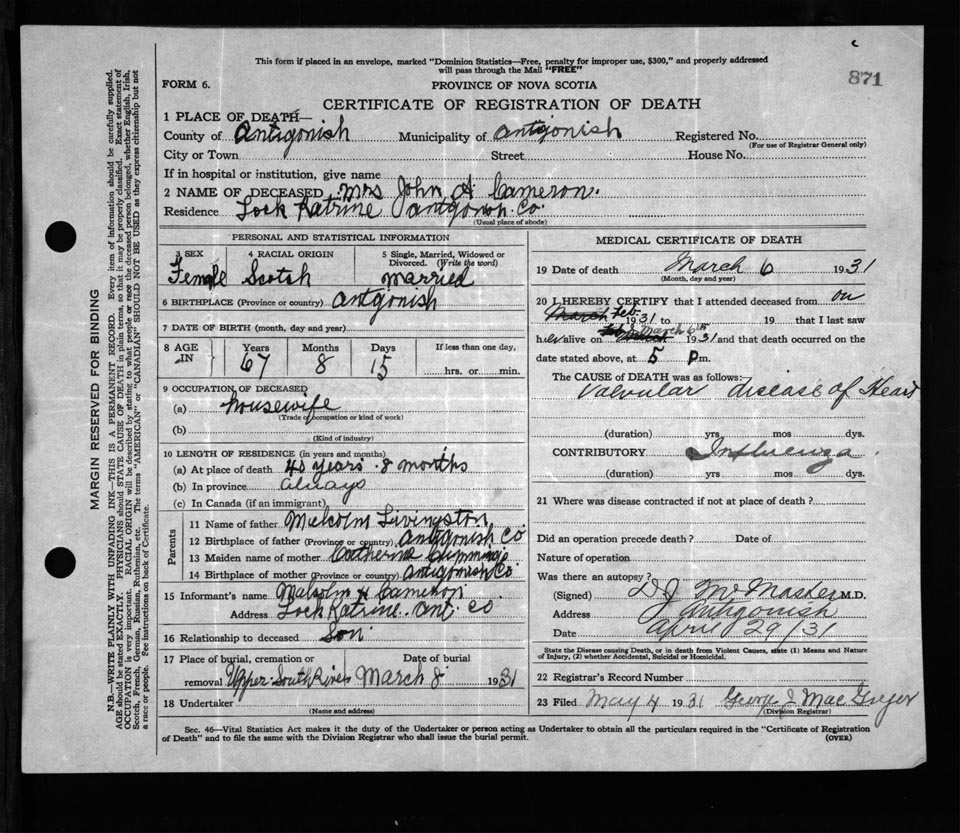 This form if placed in an envelope, marked "Dominion Statistics—Free, penalty for improper use, $300," and properly addressed
will pass through the Mail "FREE"
871
FORM 6.
PROVINCE OF NOVA SCOTIA
CERTIFICATE OF REGISTRATION OF DEATH
1 PLACE OF DEATH—
County of Antigonish Municipality of Antigonish Registered No.
(For use of Registrar General only)
City or Town Street House No.
If in hospital or institution, give name
2 NAME OF DECEASED Mrs John A Cameron.
Residence Lock Katrine Antgonish Co.
(Usual place of abode)
PERSONAL AND STATISTICAL INFORMATION
3 SEX 4 RACIAL ORIGIN 5 Single, Married, Widowed or Divorced. (Write the word)
Female Scotch Married
6 BIRTHPLACE (Province or country) Antgonish
7 DATE OF BIRTH (month, day and year)
8 AGE IN Years Months Days If less than one day,
67 8 15 hrs. or min.
9 OCCUPATION OF DECEASED
(a) housewife
(Trade occupation or kind of work)
(b)
(Kind of industry)
10 LENGTH OF RESIDENCE (in years and months)
(a) At place of death 40 years . 8 months
(b) In province always
(c) In Canada (if an immigrant)
Parents
11 Name of father Malcolm Livingston
12 Birthplace of father (Province or country) Antigonish Co
13 Maiden name of mother Catherine Cummings
14 Birthplace of mother (Province or country) Antigonish Co
15 Informant's name Malcolm H Cameron
Address Lock Katrine Ant. Co
16 Relationship to deceased Son
17 Place of burial, cremation or removal Date of burial
Upper South River March 8 1931
18 Undertaker
(Name and address)
MEDICAL CERTIFICATE OF DEATH
19 Date of death March 6 1931
(Month, day and year)
20 I HEREBY CERTIFY that I attended deceased from on
March Feb. 1931 to 19 that I last saw
her alive on March 6th 1931 and that death occurred on the
date stated above, at 5 p.m.
The CAUSE of DEATH was as follows:
Valvular disease of Heart
(duration) yrs mos dys.
CONTRIBUTORY Influenza
(duration) yrs. mos dys.
21 Where was disease contracted if not at place of death?
Did an operation precede death? Date of
Nature of operation
Was there an autopsy?
(Signed) D J McMaster M.D.
Address Antgonish
Date April 29/31
State the Disease causing Death, or in death from Violent Causes, state (1) Means and Nature
of Injury, (2) whether Accidental, Suicidal or Homicidal.
22 Registrar's Record Number
23 Filed May 4 1931 George J MacGregor
(Division Registrar)
Sec. 46—Vital Statistics Act makes it the duty of the Undertaker or person acting as Undertaker to obtain all the particulars required in the "Certificate of Registration
of Death" and to file the same with the Division Registrar who shall issue the burial permit.
(OVER)
MARGIN RESERVED FOR BINDING
N.B.—WRITE PLAINLY WITH UNFADING INK—THIS IS A PERMANENT RECORD. Every item of information should be carefully supplied.
AGE should be stated EXACTLY. PHYSICIANS should STATE CAUSE OF DEATH in plain terms, so that it may be properly classified. Exact statement of
OCCUPATION is very important. RACIAL ORIGIN will be described by stating to what people or race the deceased person belonged, whether English, Irish,
Scotch, French, German, Russian, Ruthenian, etc. The terms "AMERICAN" or "CANADIAN" SHOULD NOT BE USED as they express citizenship but not
a race or people. See instructions on back of Certificate.